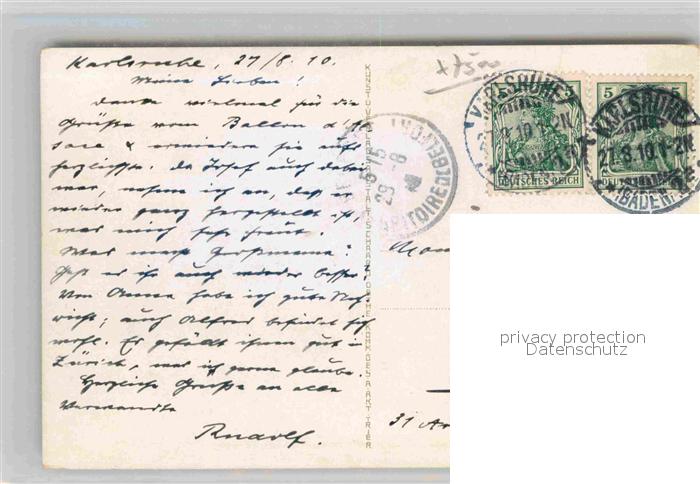 Karlsruhe, 27/8. 10.
Meine Lieben!
Danke vielmal für die
Grüße vom Ballon d'Al-
sace & erwiedere sie aufs
herzlichste. Da Josef auch dabei
war, nehme ich an, daß er
wieder ganz hergestellt ist,
was mich sehr freut.
Was macht Großmama?
Geht es ihr auch wieder besser?
Von Anna habe ich gute Nach-
richt; auch Alfred befindet sich
wohl. Es gefällt ihm gut in
Zürich, was ich gerne glaube.
Herzliche Grüße an alle
Verwandte
Rudolf.
KUNSTVERLAGSANSTALT SCHAAR & DATHE KOMM.GES.A.AKT. TRIER
5 5
DEUTSCHES REICH
KARLSRUHE
(BADEN)
5 5
KARLSRUHE
27.8.10.1-2N
(BADEN)
TERRITOIRE DE BELFORT
29 -8
31
privacy protection
Datenschutz